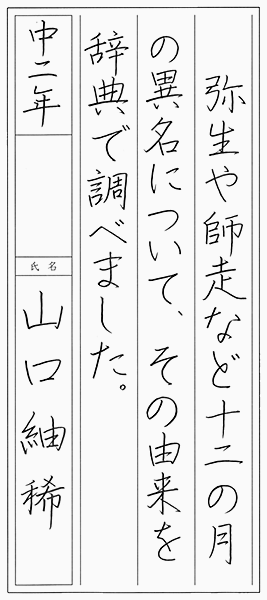 弥生や師走など十二の月
の異名について、その由来を
辞典で調べました。
中二年
氏名
山口紬稀